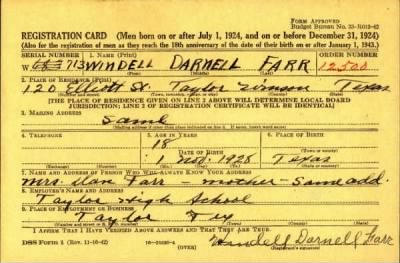 Form Approved
Budget Bureau No. 33-R012-42
REGISTRATION CARD (Men born on or after July 1, 1924, and on or before December 31, 1924)
(Also for the registration of men as they reach the 18th anniversary of the date of their birth on or after January 1, 1943.)
SERIAL NUMBER 1. NAME (Print) ORDER NUMBER
W 713 WINDELL DARNELL FARR 12500
(First) (Middle) (Last)
2. PLACE OF RESIDENCE (Print)
120 Elliott St. Taylor Texas
(Number and street) (Town, township, village, or city) (County) (State)
[THE PLACE OF RESIDENCE GIVEN ON LINE 2 ABOVE WILL DETERMINE LOCAL BOARD
JURISDICTION; LINE 2 OF REGISTRATION CERTIFICATE WILL BE IDENTICAL]
3. MAILING ADDRESS
Same
[Mailing address if other than place indicated on line 2. If same, insert word same]
4. TELEPHONE 5. AGE IN YEARS 6. PLACE OF BIRTH
18
DATE OF BIRTH (Town or county)
1 Nov. 1928 Texas
(Exchange) (Number) (Mo.) (Day) (Yr.) (State or country)
7. NAME AND ADDRESS OF PERSON WHO WILL ALWAYS KNOW YOUR ADDRESS
Mrs. Dan Farr - mother - Same add.
8. EMPLOYER'S NAME AND ADDRESS
Taylor High School
9. PLACE OF EMPLOYMENT OR BUSINESS
Taylor Tex
(Number and street or R. F. D. number) (Town) (County) (State)
I AFFIRM THAT I HAVE VERIFIED ABOVE ANSWERS AND THAT THEY ARE TRUE.
DSS Form 1 (Rev. 11-16-42) (OVER) Windell Darnell Farr
(Registrant's signature)